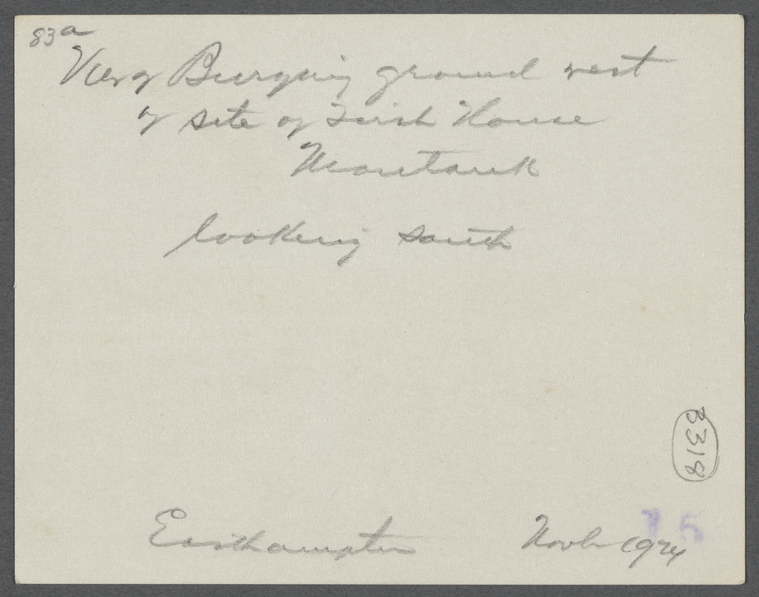 83a
View of Burying ground west
of site of First House
Montauk
looking south
3318
15
Easthampton Novbr 1924